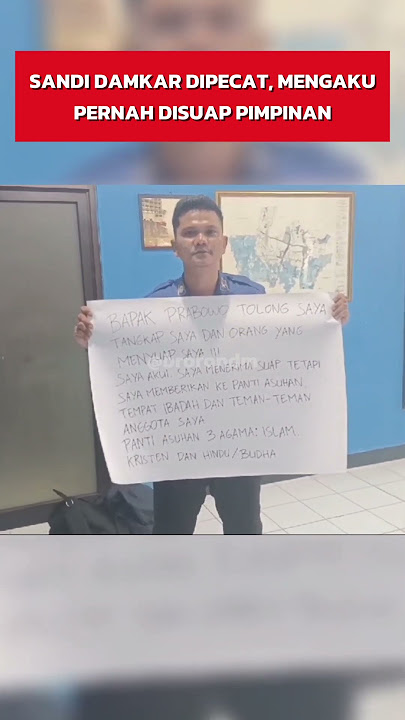 SANDI DAMKAR DIPECAT, MENGAKU
PERNAH DISUAP PIMPINAN
BAPAK PRABOWO TOLONG SAYA
TANGKAP SAYA DAN ORANG YANG
MENYUAP SAYA !!!
SAYA AKUI SAYA MENERIMA SUAP TETAPI
SAYA MEMBERIKAN KE PANTI ASUHAN
TEMPAT IBADAH DAN TEMAN-TEMAN
ANGGOTA SAYA
PANTI ASUHAN 3 AGAMA: ISLAM.
KRISTEN DAN HINDU/BUDHA